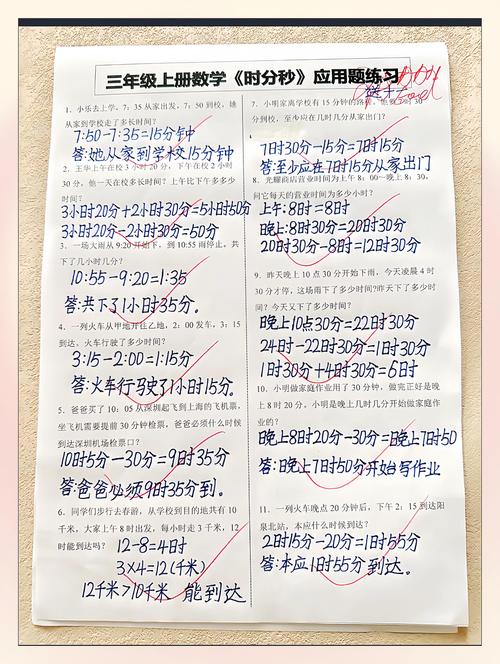 三年级上册数学《时分秒》应用题练习
Good
1、小乐去上学，7：35 从家出发，7：50 到校，她
从家到学校走了多长时间？
7:50-7:35=15分钟
答:她从家到学校15分钟
2、王华上午在校3小时20分，下午在校2小时
30分，他一天在校多长时间？上午比下午多多少
时间？
3小时20分+2小时30分=5小时50分
3小时20分-2小时30分=50分
3、一场大雨从9:20开始下，到10:55雨停止。共
下了几小时几分？
10:55-9:20=1:35
答:共下了1小时35分。
4、一列火车从甲地开往乙地，2：00 发车，3：15
到达。火车行驶了多少时间？
3:15-2:00=1:15分
答:火车行驶了1小时15分。
5、爸爸买了10：05从深圳起飞到上海的飞机票，
坐飞机需要提前30分钟检票，爸爸必须什么时候
到达深圳机场检票口？
10时5分-30分=9时35分
答:爸爸必须9时35分到。
6、同学们步行去春游，从学校到目的地共有10
千米，大家上午8时出发，每小时走3千米，12
时能到达吗？
12-8=4时
3×4=12(千米)
12千米>10千米 能到达
7、小明家离学校有15分钟的路程，他要7时30
分到校，至少应在几时几分从家出门？
7时30分-15分=7时15分
答:至少应在7时15分从家出门
8、光耀商店营业时间为上午8：00～晚上8：30，
问它每天的营业时间为多少小时？
上午:8时=8时
晚上:8时30分=20时30分
20时30分-8时=12时30分
9、昨天晚上10点30分开始下雨，今天凌晨4时
30分才停，这场雨下了多少时间?昨天下了多少时
间？今天又下了多少时间？
晚上10点30分=22时30分
24时-22时30分=1时30分
1时30分+4时30分=6时
10、小明做家庭作业用了30分钟，做完正好是晚
上8时20分。小明是晚上几时几分开始做家庭作
业的？
晚上8时20分-30分=晚上7时50
答:晚上7时50分开始写作业
11、一列火车晚点20分钟后，下午2：15到达阳
泉北站，本应什么时候到达？
2时15分-20分=1时55分
答:本应1时55分到达。